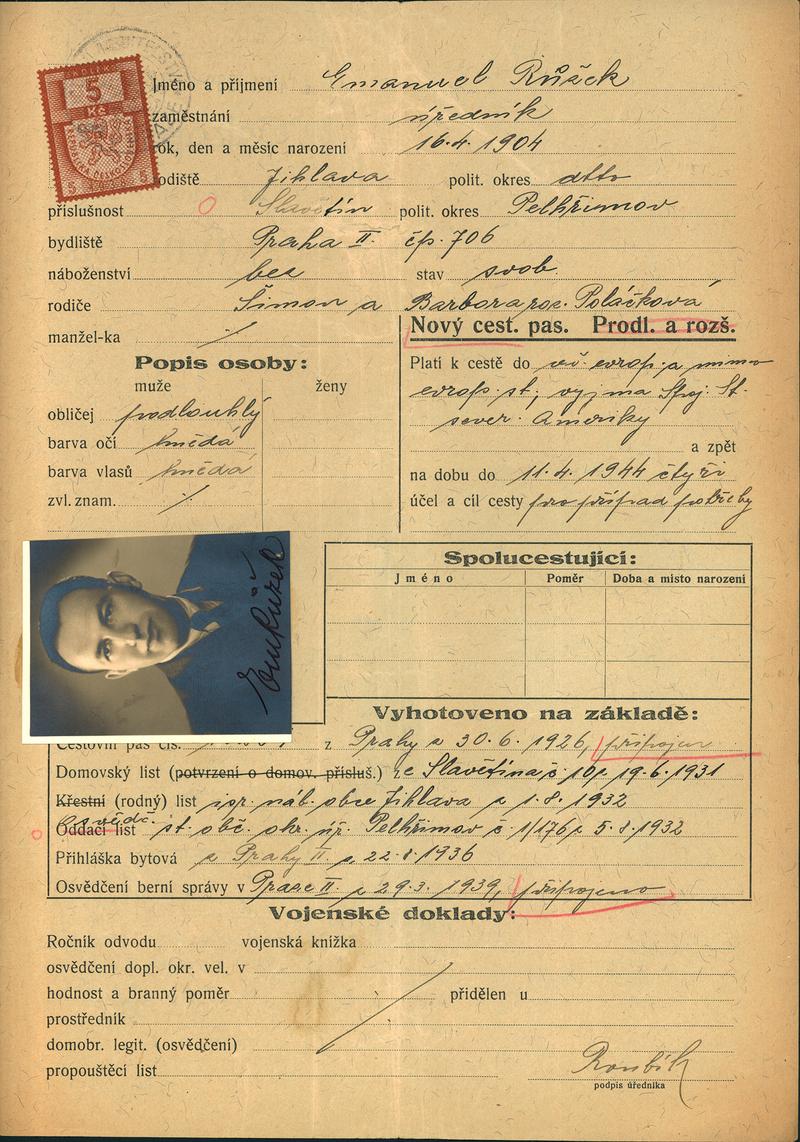 KOLEK
5
Kč
5 5
Jméno a příjmení Emanuel Růžek
zaměstnání úředník
rok, den a měsíc narození 16.4. 1904
rodiště Jihlava polit. okres dtto
příslušnost Slavětín polit. okres Pelhřimov
bydliště Praha II. čp. 706
náboženství bez stav svob.
rodiče Šimon a Barbora roz. Poláčková
manžel-ka /
Nový cest. pas. Prodl. a rozš.
Popis osoby:
muže ženy
obličej podlouhlý
barva očí hnědá
barva vlasů hnědá
zvl. znam. /
Platí k cestě do vš. evrop. a mimo
evrop. st., vyjma Spoj. St.
sever. Ameriky
a zpět
na dobu do 11.4. 1944 čtyři
účel a cíl cesty pro případ potřeby
Em Růžek
Spolucestující:
Jméno Poměr Doba a místo narození
Vyhotoveno na základě:
Cestovní pas čís. z Prahy z 30.6.1926, připojen
Domovský list (potvrzení o domov. přísluš.) ze Slavětína č. 10 z 19.6.1931
Křestní (rodný) list isr. náb. obce Jihlava z 1.8.1932
osvědč.
Oddací list st. obč. okr. úř. Pelhřimov č. 1/176 z 5.8.1932
Přihláška bytová z Prahy II. z 22.8.1936
Osvědčení berní správy v Praze II. z 29.3.1939, připojeno
Vojenské doklady:
Ročník odvodu vojenská knížka
osvědčení dopl. okr. vel. v
hodnost a branný poměr přidělen u
prostředník
domobr. legit. (osvědčení)
propouštěcí list Roubík
podpis úředníka